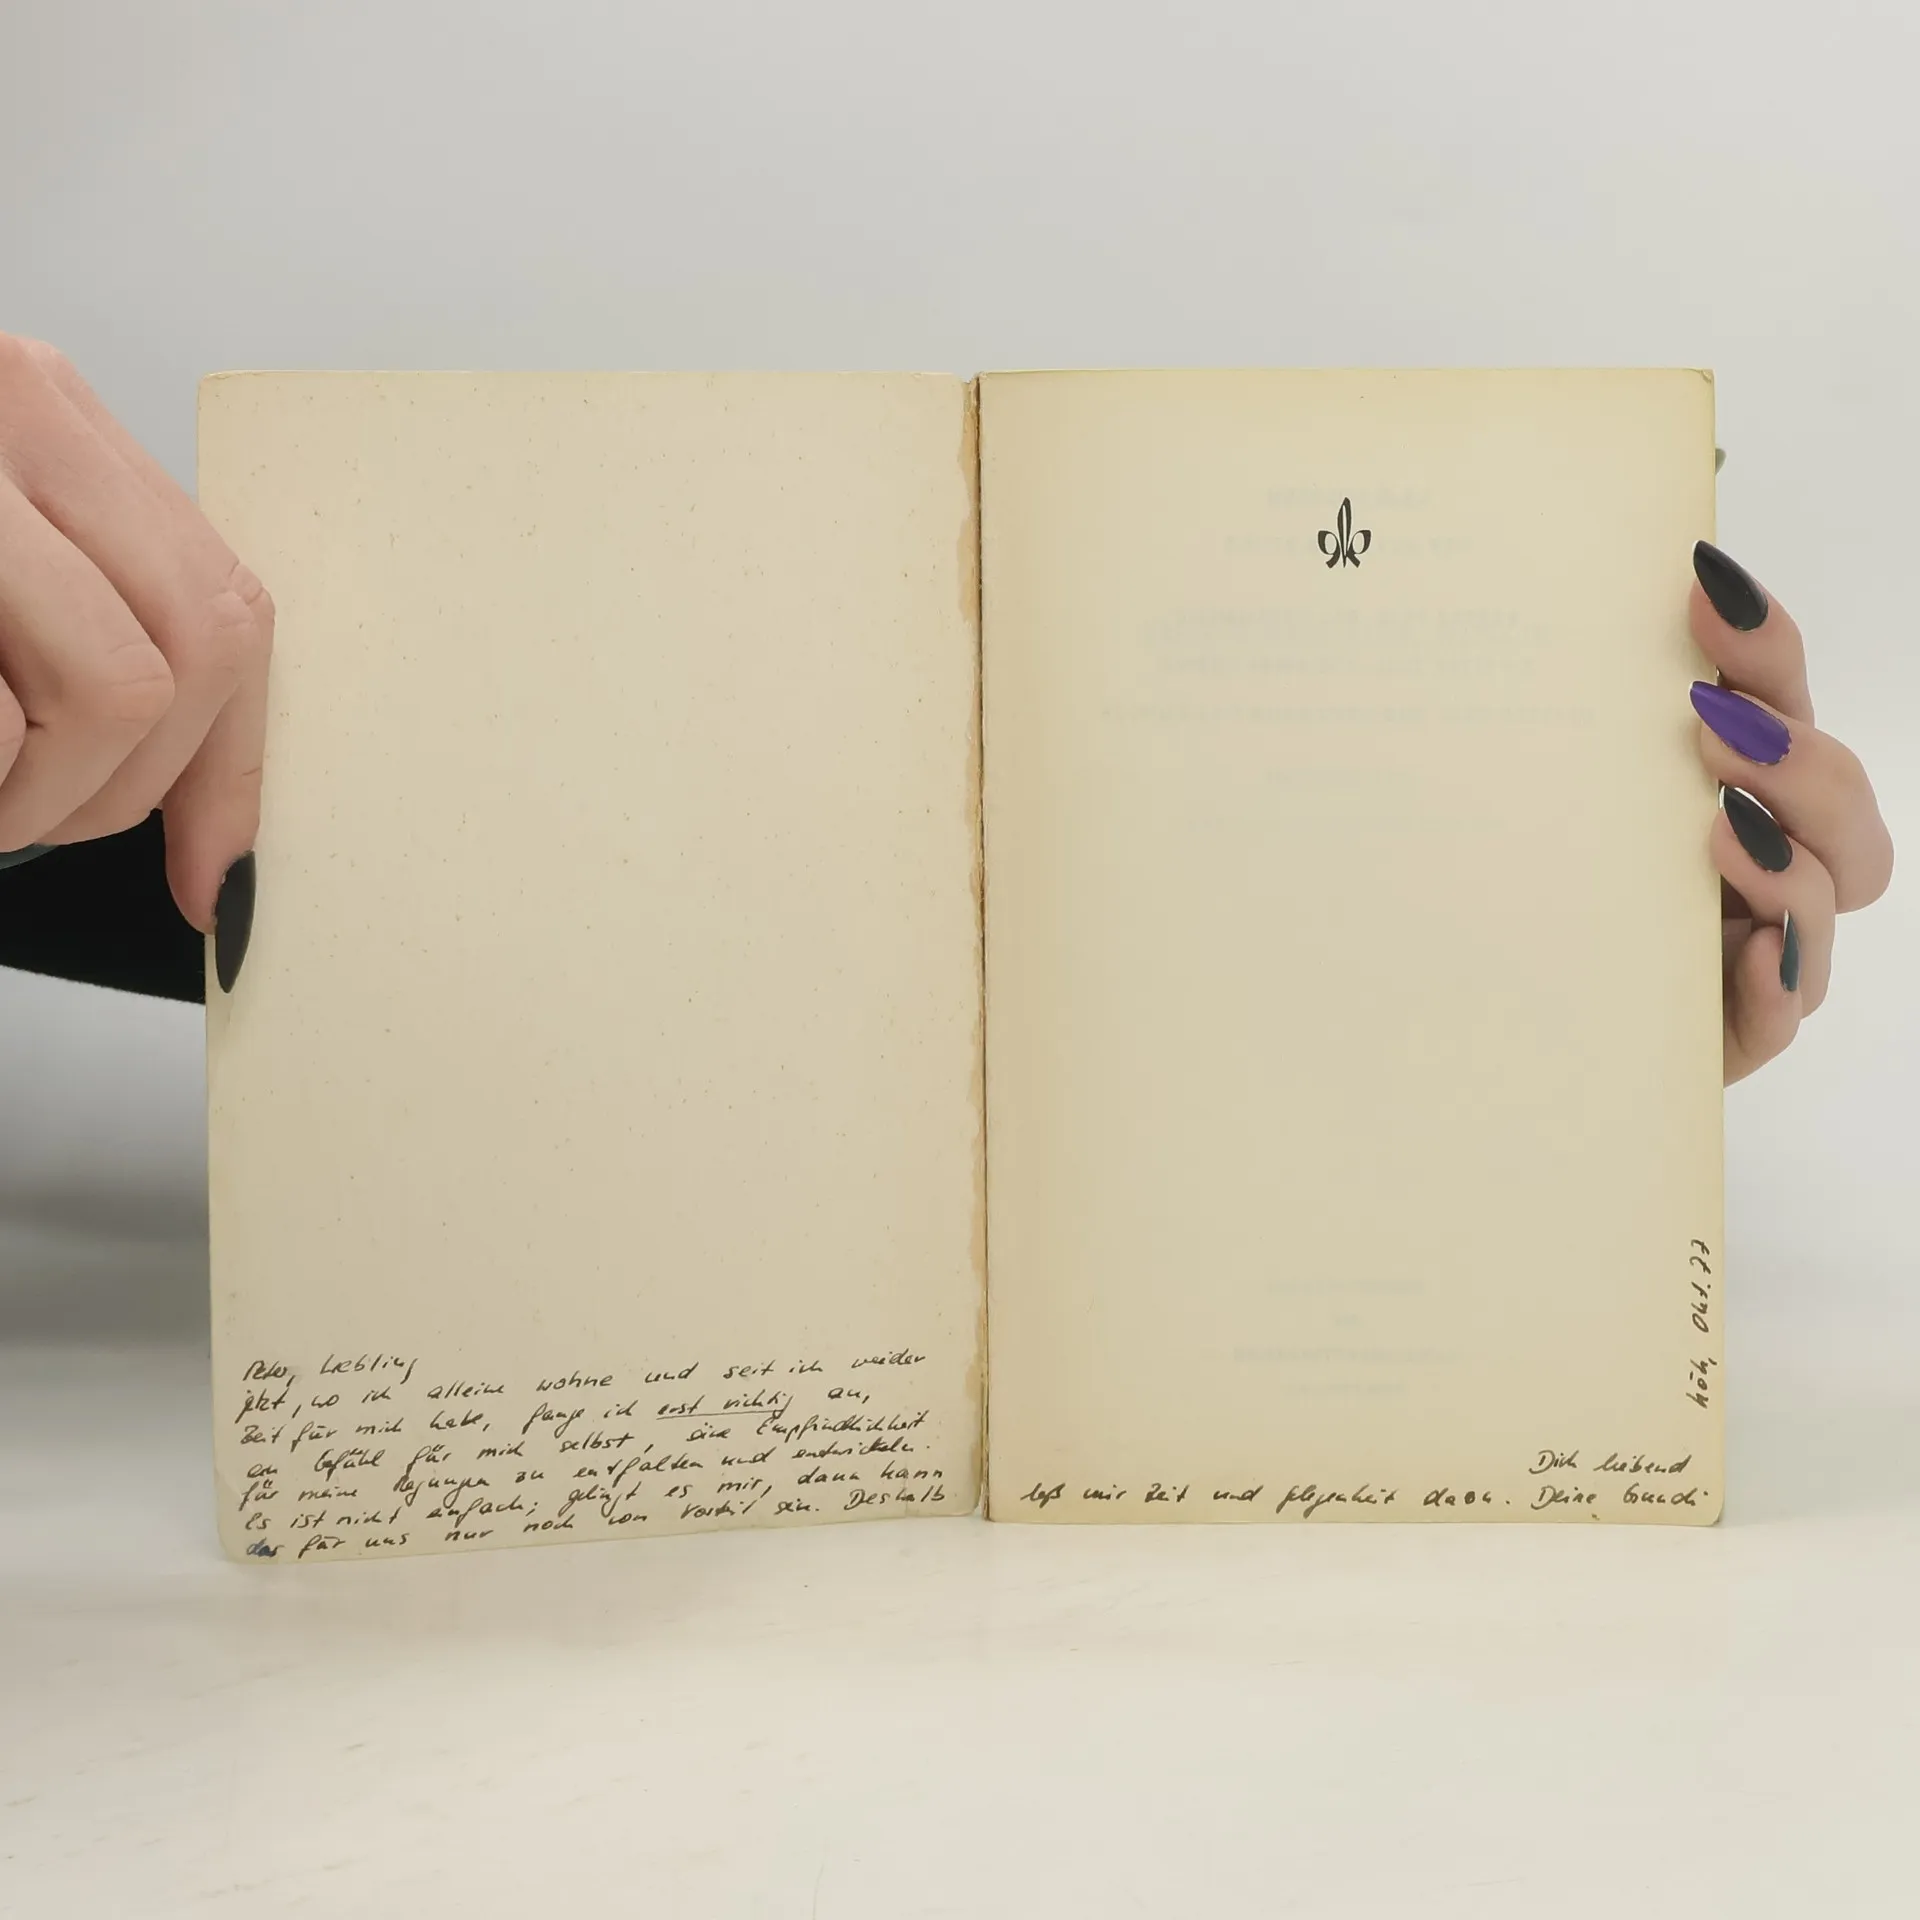 Peter, Liebling
jetzt, wo ich alleine wohne und seit ich wieder
Zeit für mich habe, fange ich erst richtig an,
ein Gefühl für mich selbst, eine Empfindlichkeit
für meine Regungen zu entfalten und entwickeln.
Es ist nicht einfach; gelingt es mir, dann kann
das für uns nur noch von Vorteil sein. Deshalb
Dich liebend
laß mir Zeit und Gelegenheit dazu. Deine Gundi